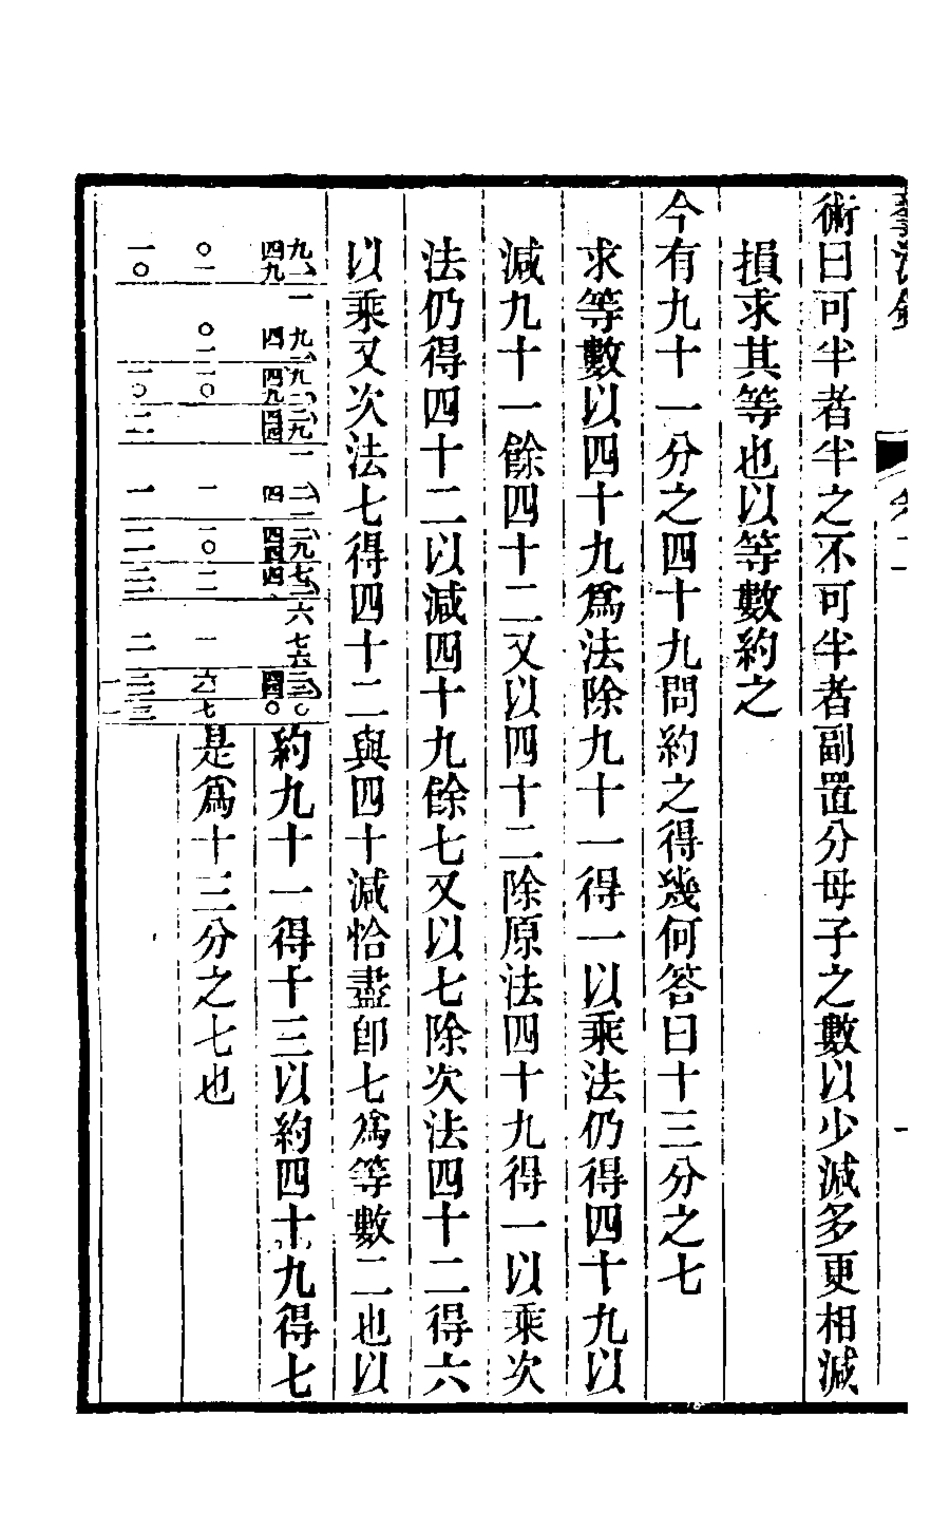 術曰可半者半之不可半者副置分母子之數以少減多更相減
損求其等也以等數約之
今有九十一分之四十九問約之得幾何答曰十三分之七
求等數以四十九爲法除九十一得一以乘法仍得四十九以
減九十一餘四十二又以四十二除原法四十九得一以乘次
法仍得四十二以減四十九餘七又以七除次法四十二得六
以乘又次法七得四十二與四十減恰盡卽七爲等數二也以
約九十一得十三以約四十九得七
是爲十三分之七也